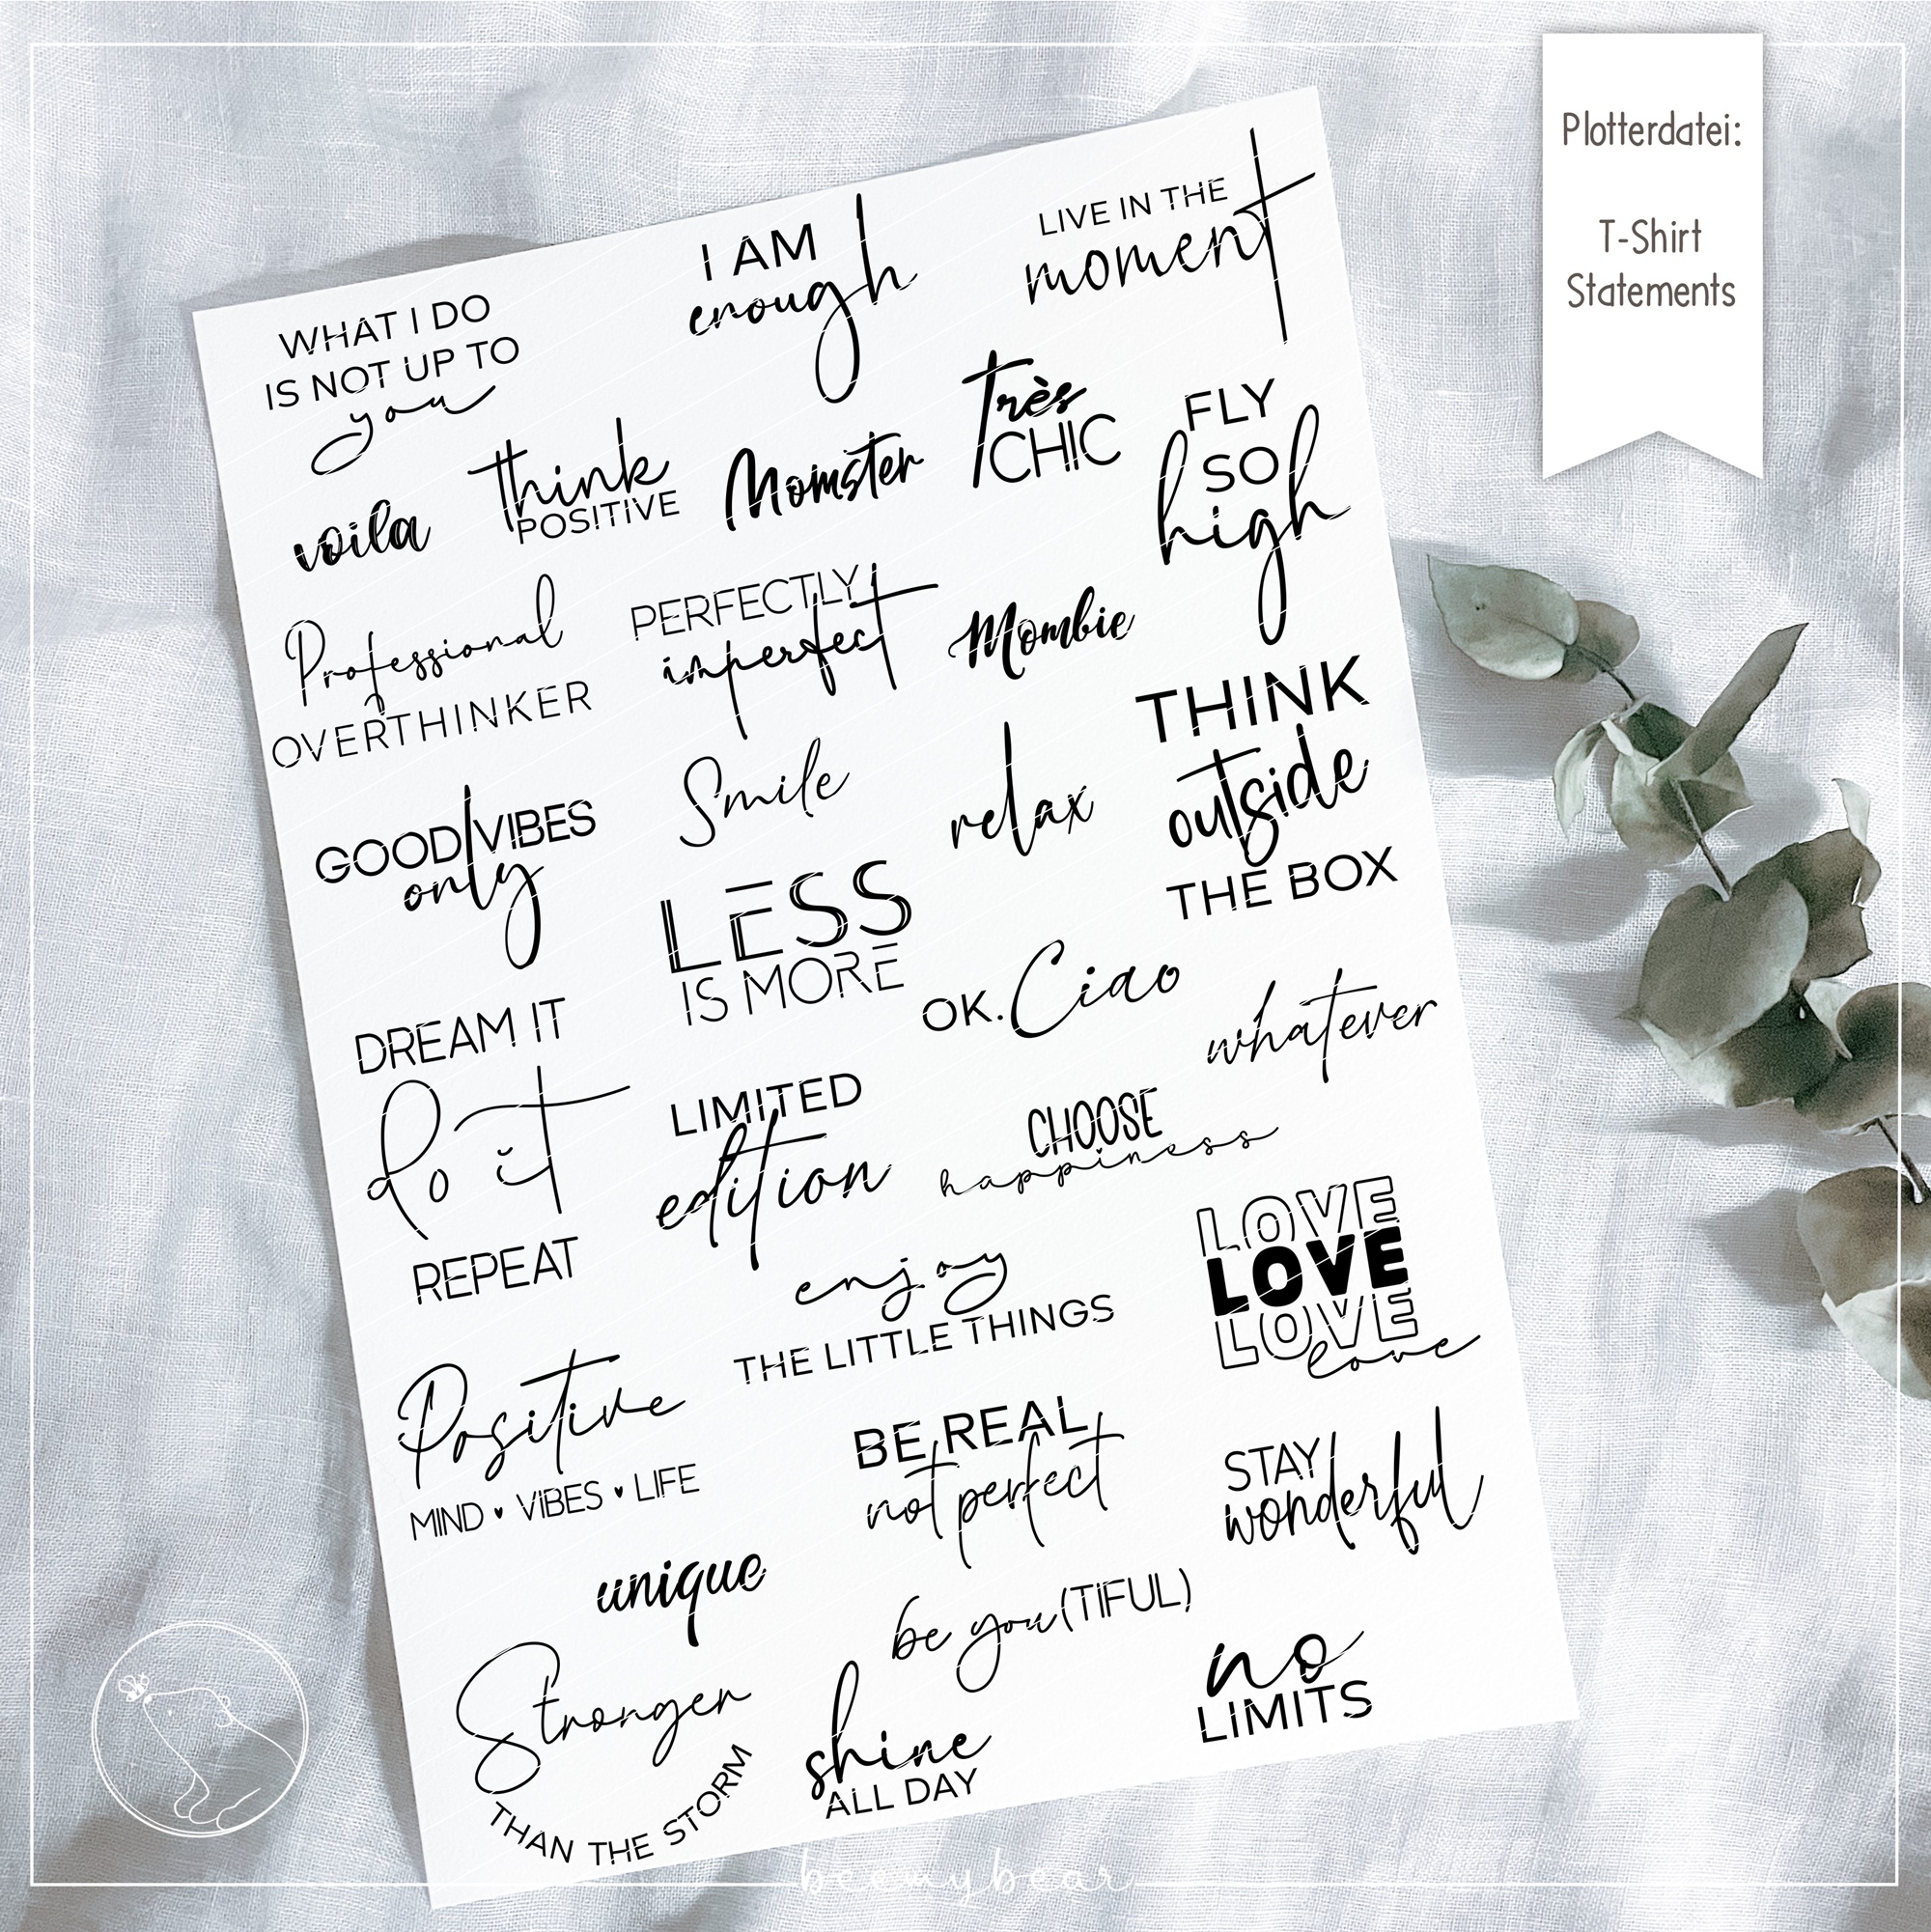 Plotterdatei:
T-Shirt
Statements
WHAT I DO
IS NOT UP TO
you
I AM
enough
LIVE IN THE
moment
voila
think
POSITIVE
Momster
Très
CHIC
FLY
SO
high
Professional
OVERTHINKER
PERFECTLY
imperfect
Mombie
THINK
outside
THE BOX
GOOD VIBES
only
Smile
relax
LESS
IS MORE
OK. Ciao
whatever
DREAM IT
do it
REPEAT
LIMITED
edition
CHOOSE
happiness
enjoy
THE LITTLE THINGS
LOVE
LOVE
LOVE
love
Positive
MIND ♥ VIBES ♥ LIFE
BE REAL
not perfect
STAY
wonderful
unique
be you(TIFUL)
Stronger
THAN THE STORM
shine
ALL DAY
no
LIMITS
beemybear